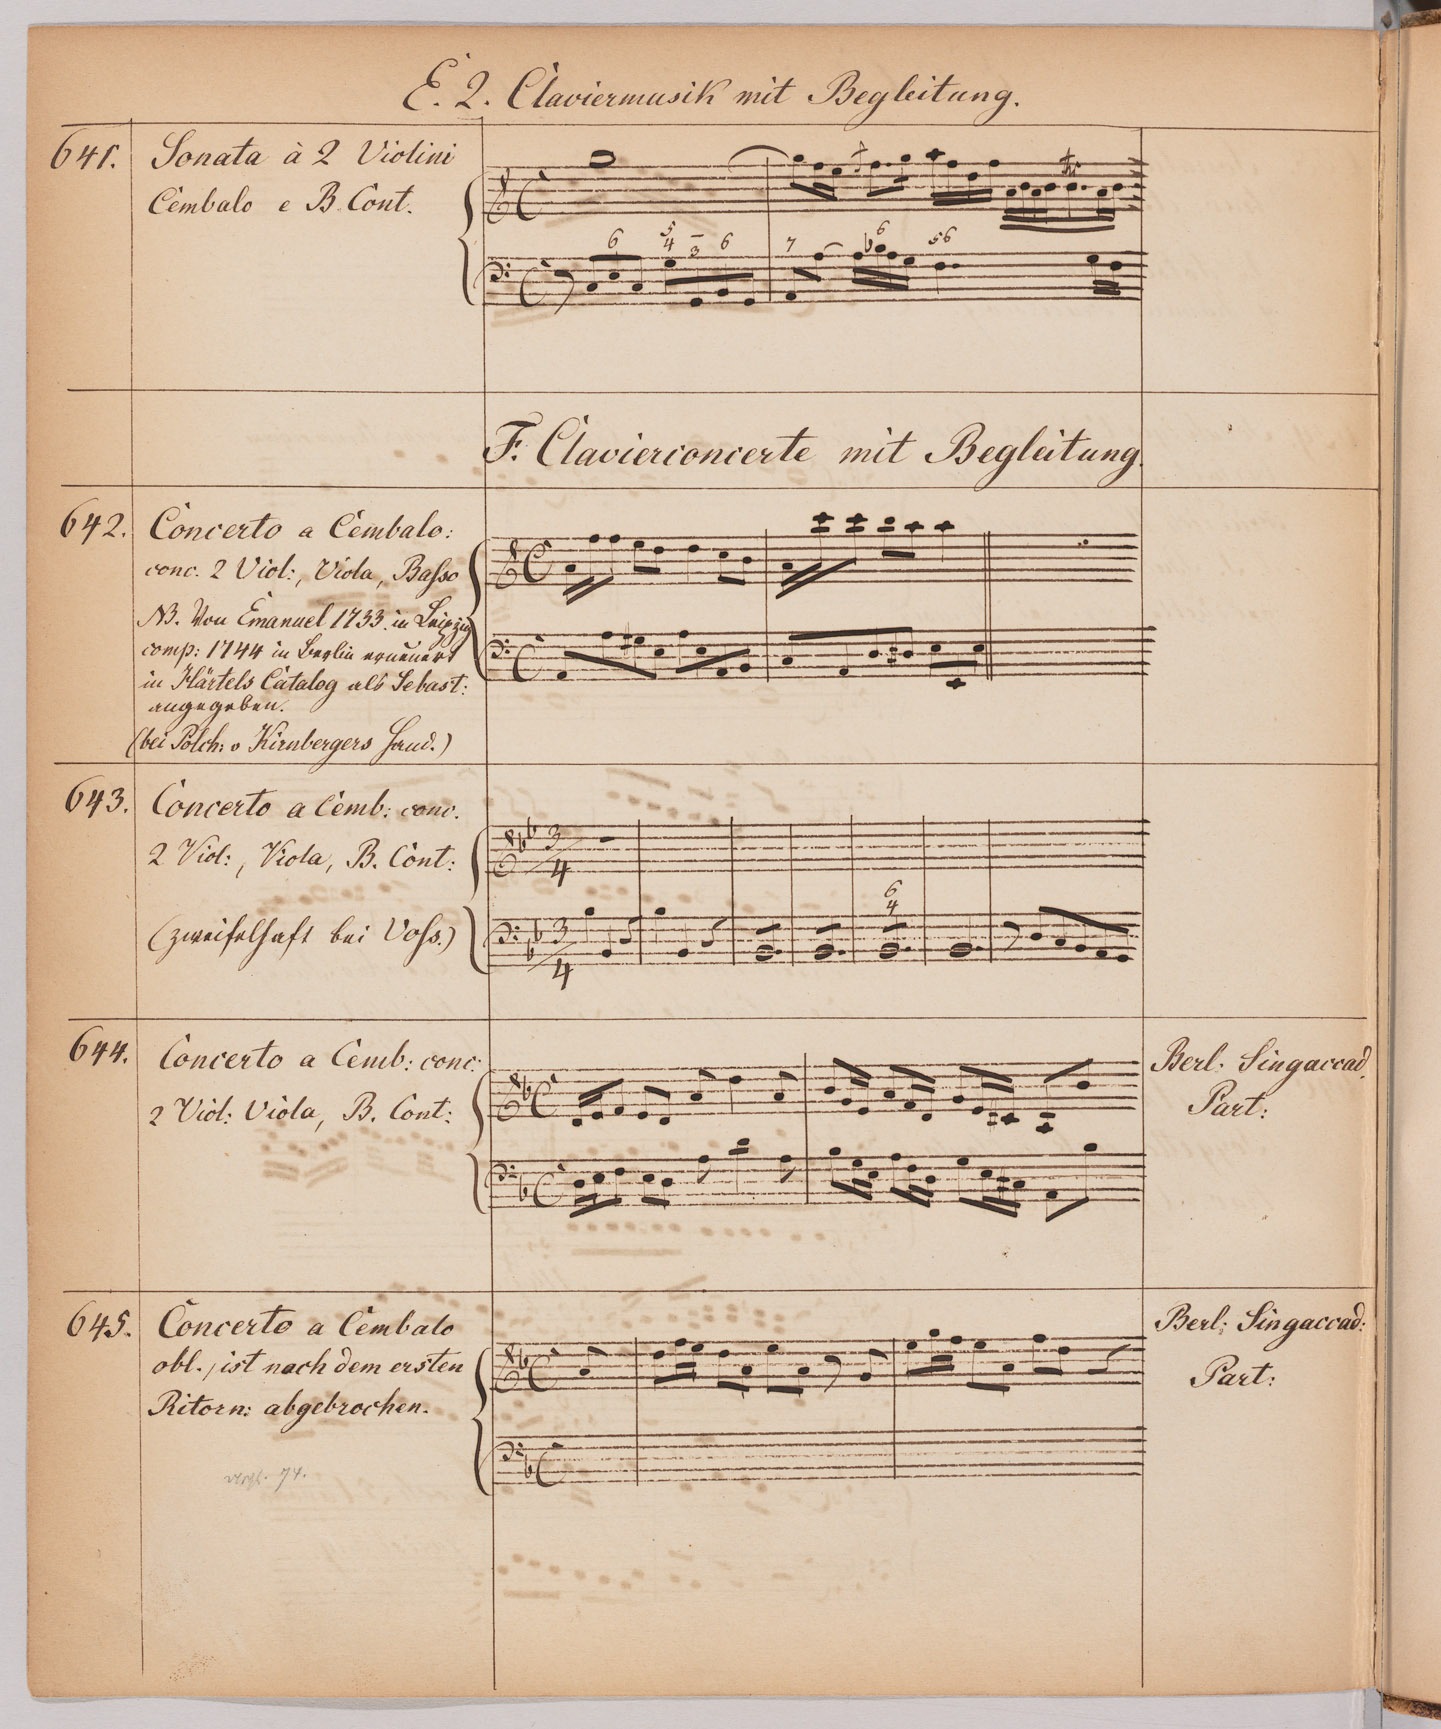 E. 2. Claviermusik mit Begleitung.
641. Sonata à 2 Violini
Cembalo e B. Cont.
6 5 4 – 3 6 7 6 5 6
F. Clavierconcerte mit Begleitung.
642. Concerto a Cembalo:
conc. 2 Viol:, Viola, Baſso
NB. Von Emanuel 1733. in Leipzig
comp: 1744 in Berlin erneuert
in Härtels Catalog als Sebast:
angegeben.
(bei Pölch: v Kirnbergers Hand.)
643. Concerto a Cemb: conc.
2 Viol:, Viola, B. Cont:
3/4
6 4
(zweifelhaft bei Voſs.)
3/4
644. Concerto a Cemb: conc:
Berl: Singaccad.
2 Viol: Viola, B. Cont:
Part:
645. Concerto a Cembalo
Berl: Singaccad:
obl., ist nach dem ersten
Part:
Ritorn: abgebrochen.
vergl. 74.